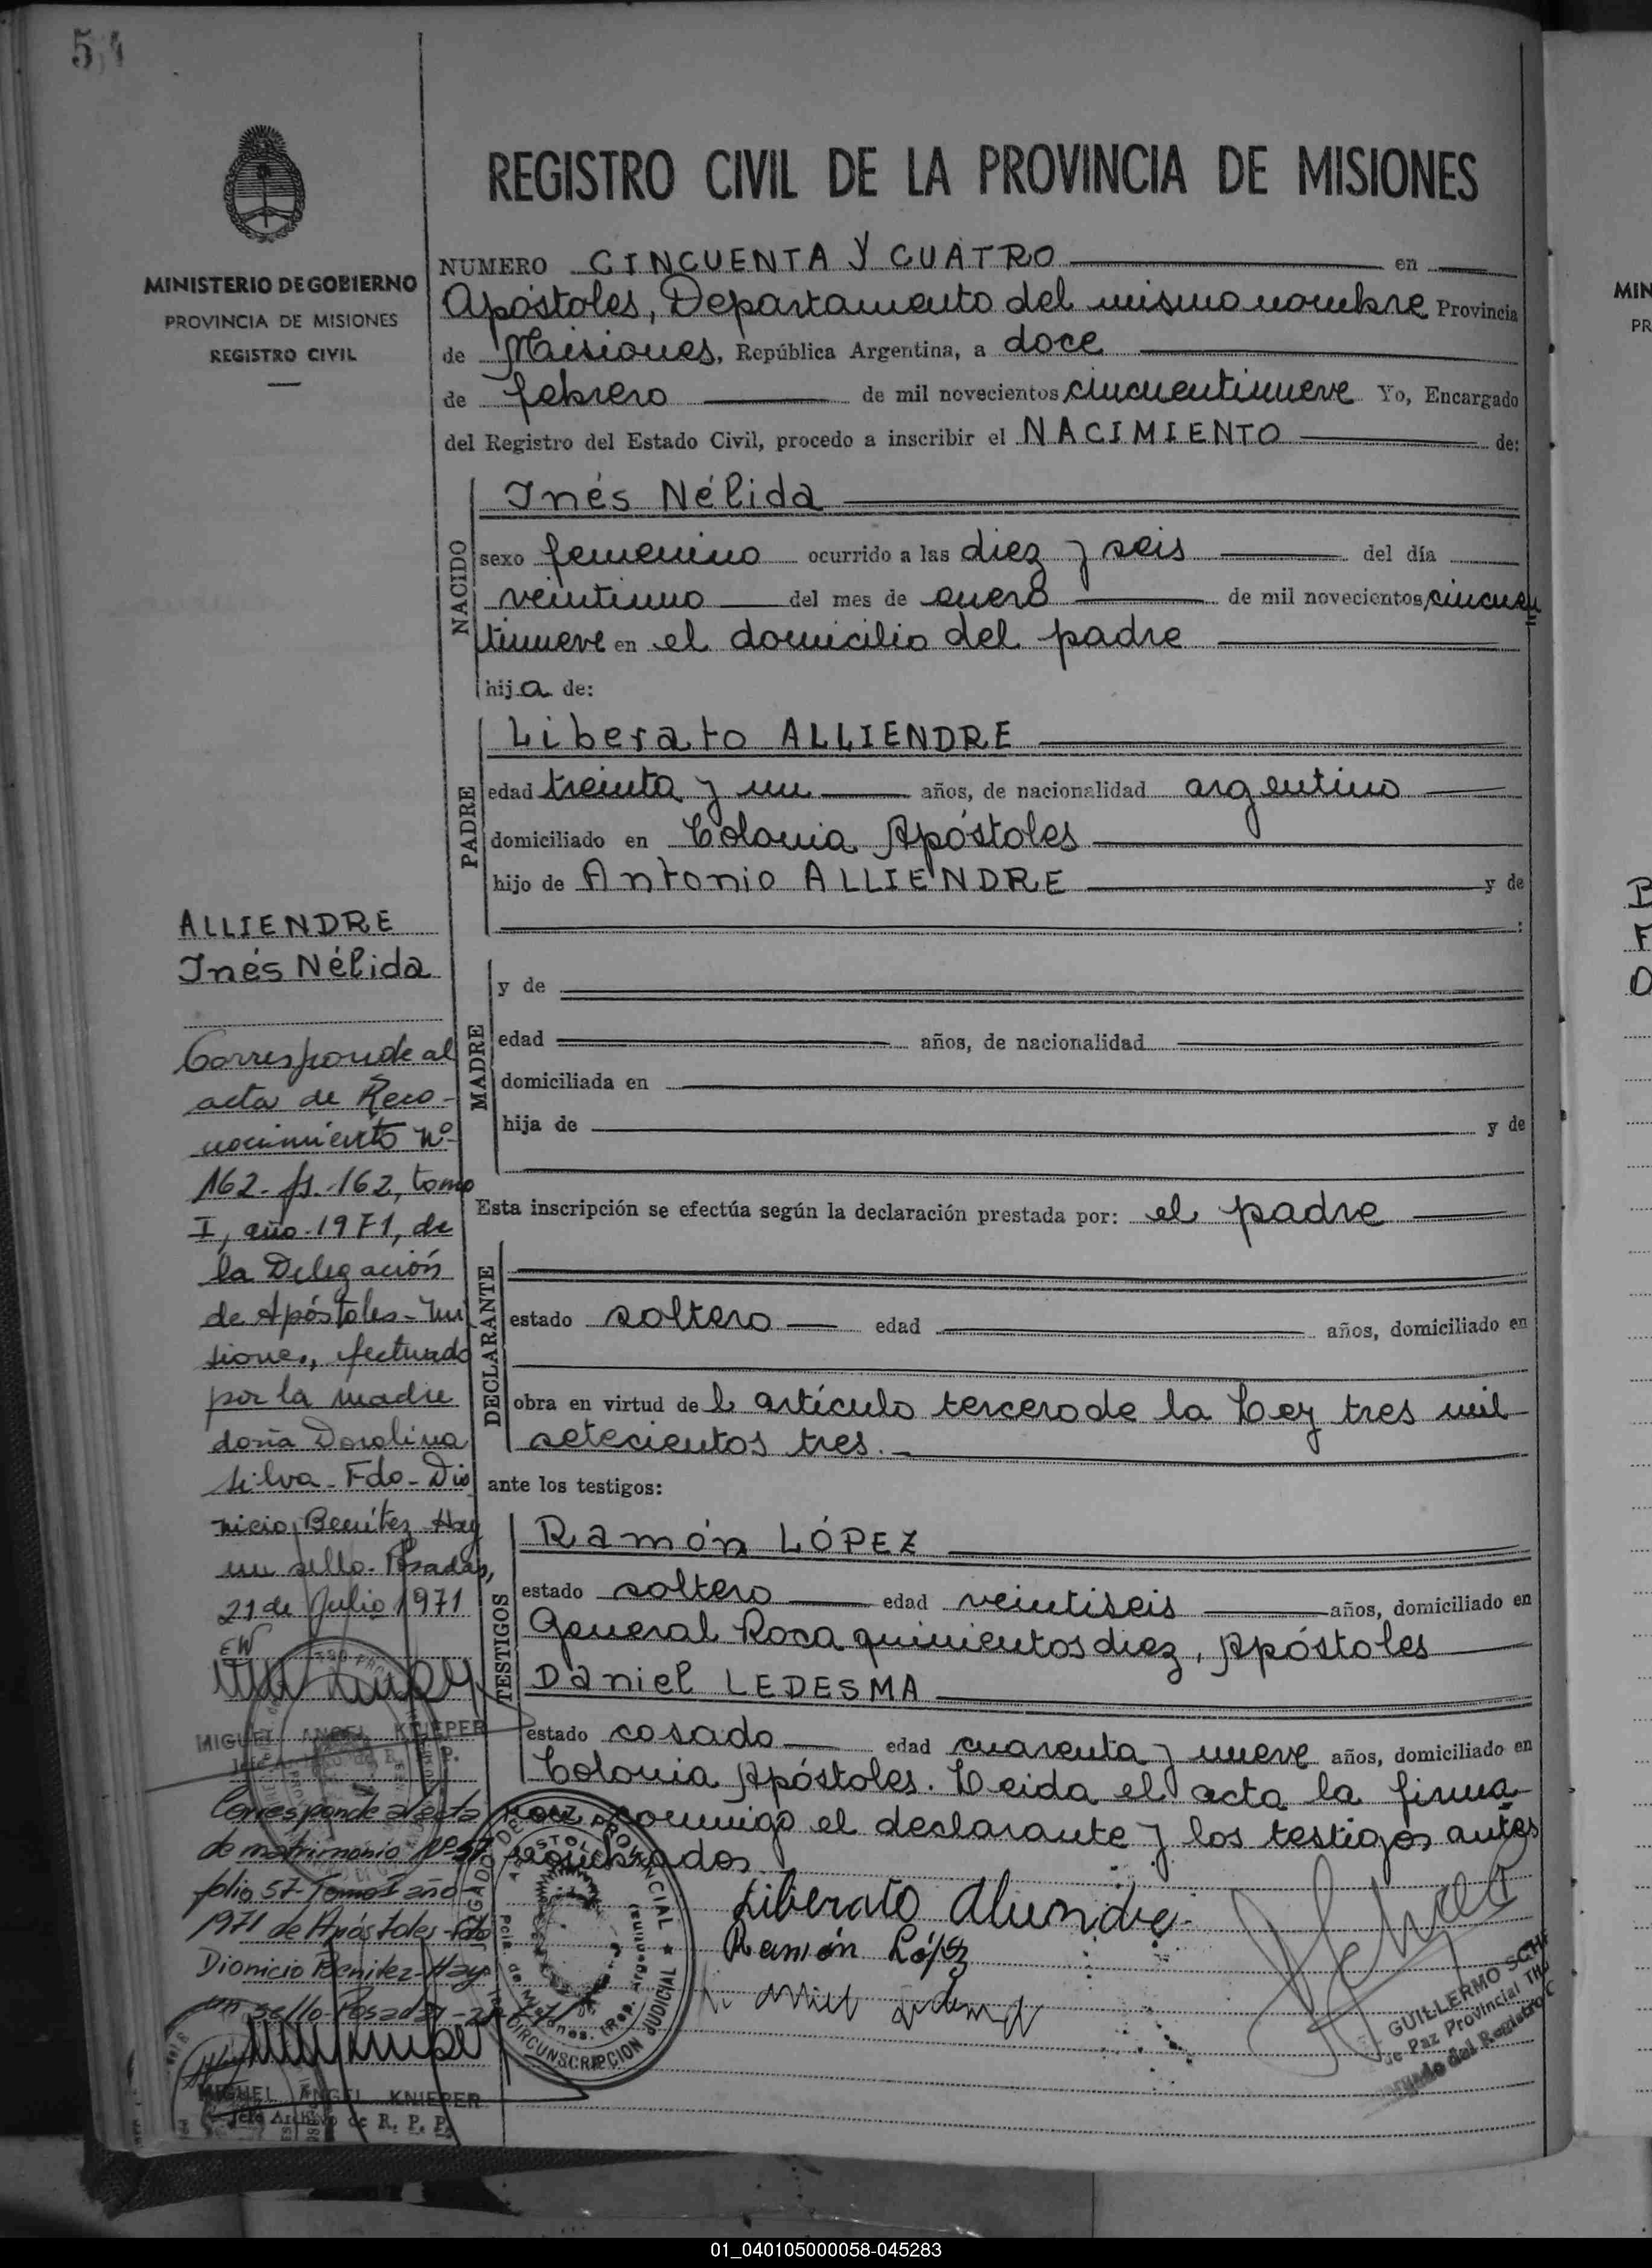 54
REGISTRO CIVIL DE LA PROVINCIA DE MISIONES
MINISTERIO DE GOBIERNO
PROVINCIA DE MISIONES
REGISTRO CIVIL
NUMERO CINCUENTA Y CUATRO en
Apóstoles, Departamento del mismo nombre Provincia
de Misiones, República Argentina, a doce
de febrero de mil novecientos cincuentinueve Yo, Encargado
del Registro del Estado Civil, procedo a inscribir el NACIMIENTO de:
NACIDO
Inés Nélida
sexo femenino ocurrido a las diez y seis del día
veintiuno del mes de enero de mil novecientos cincuen
tinueve en el domicilio del padre
hija de:
PADRE
Liberato ALLIENDRE
edad treinta y un años, de nacionalidad argentino
domiciliado en Colonia Apóstoles
hijo de Antonio ALLIENDRE y de
MADRE
y de
edad años, de nacionalidad
domiciliada en
hija de y de
Esta inscripción se efectúa según la declaración prestada por: el padre
DECLARANTE
estado soltero edad años, domiciliado en
obra en virtud de l artículo tercero de la Ley tres mil
setecientos tres.
ante los testigos:
TESTIGOS
Ramón LÓPEZ
estado soltero edad veintiseis años, domiciliado en
General Roca quinientos diez, Apóstoles
Daniel LEDESMA
estado casado edad cuarenta y nueve años, domiciliado en
Colonia Apóstoles. Leida el acta la firma
con conmigo el declarante y los testigos antes
nombrados
Liberato Aliendre
Ramón López
GUILLERMO SCH
de Paz Provincial
del Registro C
JUZGADO DE PAZ PROVINCIAL
APOSTOLES
Pcia. de Misiones. (Rep. Argentina)
CIRCUNSCRIPCION JUDICIAL
ALLIENDRE
Inés Nélida
Corresponde al
acta de Reco-
nocimiento nº
162-fs.-162, tomo
I, año-1971, de
la Delegación
de Apóstoles-Mi
siones, efectuado
por la madre
doña Dorolina
Silva-Fdo-Dio
nicio Benítez-Hay
un sello. Posadas,
21 de Julio 1971
EW
MIGUEL ANGEL KNIEPER
Jefe Archivo de R. P. P.
Corresponde al acta
de matrimonio Nº 57
folio 57-Tomo I año
1971 de Apóstoles-Fdo
Dionicio Benitez-Hay
un sello-Posadas
MIGUEL ANGEL KNIEPER
Jefe Archivo de R. P. P.
MIN
PR
01_040105000058-045283